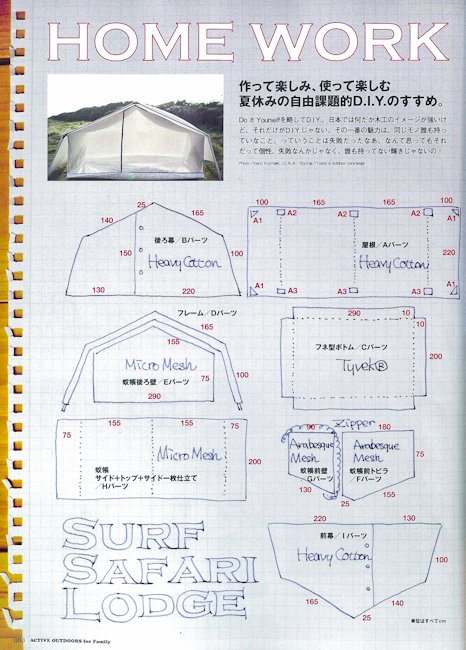 HOME WORK
作って楽しみ、使って楽しむ
夏休みの自由課題的D.I.Y.のすすめ。
Do It Yourselfを略してD.I.Y.。日本では何だか木工のイメージが強いけ
ど、それだけがD.I.Y.じゃない。その一番の魅力は、同じモノ誰も持っ
ていなこと。っていうことは失敗だったなあ、なんて思ってもそれ
だって個性。失敗なんかじゃなく、誰も持ってない輝きじゃないの!
25
140
165
150
後ろ幕/Bパーツ
Heavy Cotton
130
220
100
100
140
165
100
A1
A2
A2
A1
屋根/Aパーツ
Heavy Cotton
220
A1
A3
A3
A1
フレーム/Dパーツ
155
165
Micro Mesh
蚊帳後ろ壁/Eパーツ
75
100
290
290
10
10
フネ型ボトム/Cパーツ
Tyvek®
200
75
155
155
75
Micro Mesh
200
蚊帳
サイド+トップ+サイド一枚仕立て
/Hパーツ
Zipper
90
180
Arabesque
Mesh
Arabesque
Mesh
75
蚊帳前壁
/Gパーツ
蚊帳前トビラ
/Fパーツ
130
155
25
SURF
SAFARI
LODGE
220
130
前幕/Iパーツ
Heavy Cotton
100
165
140
25
単位はすべてcm
ACTIVE OUTDOORS for Family